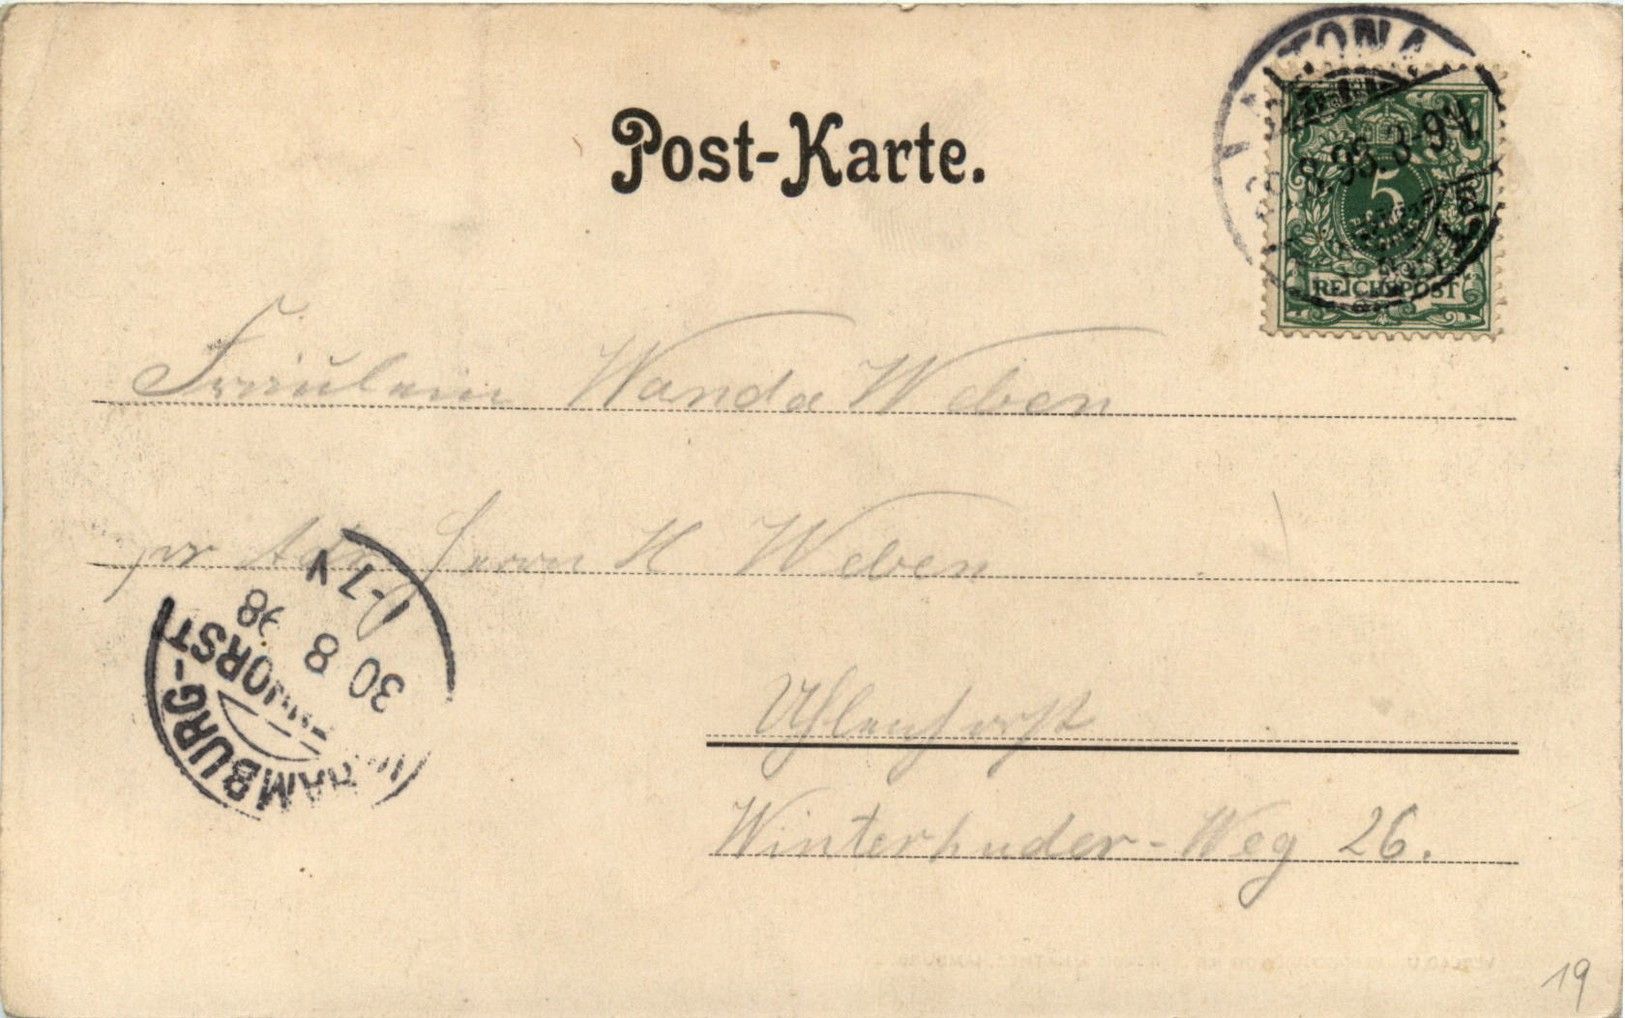 Post-Karte.
ALTONA
8.98.3-9V.
5
REICHSPOST
Fräulein Wanda Weben
pr Adr Herrn H Weben
HAMBURG-
HORST
30 8 98
-7V
Uhlenhorst
Winterhuder-Weg 26.
19